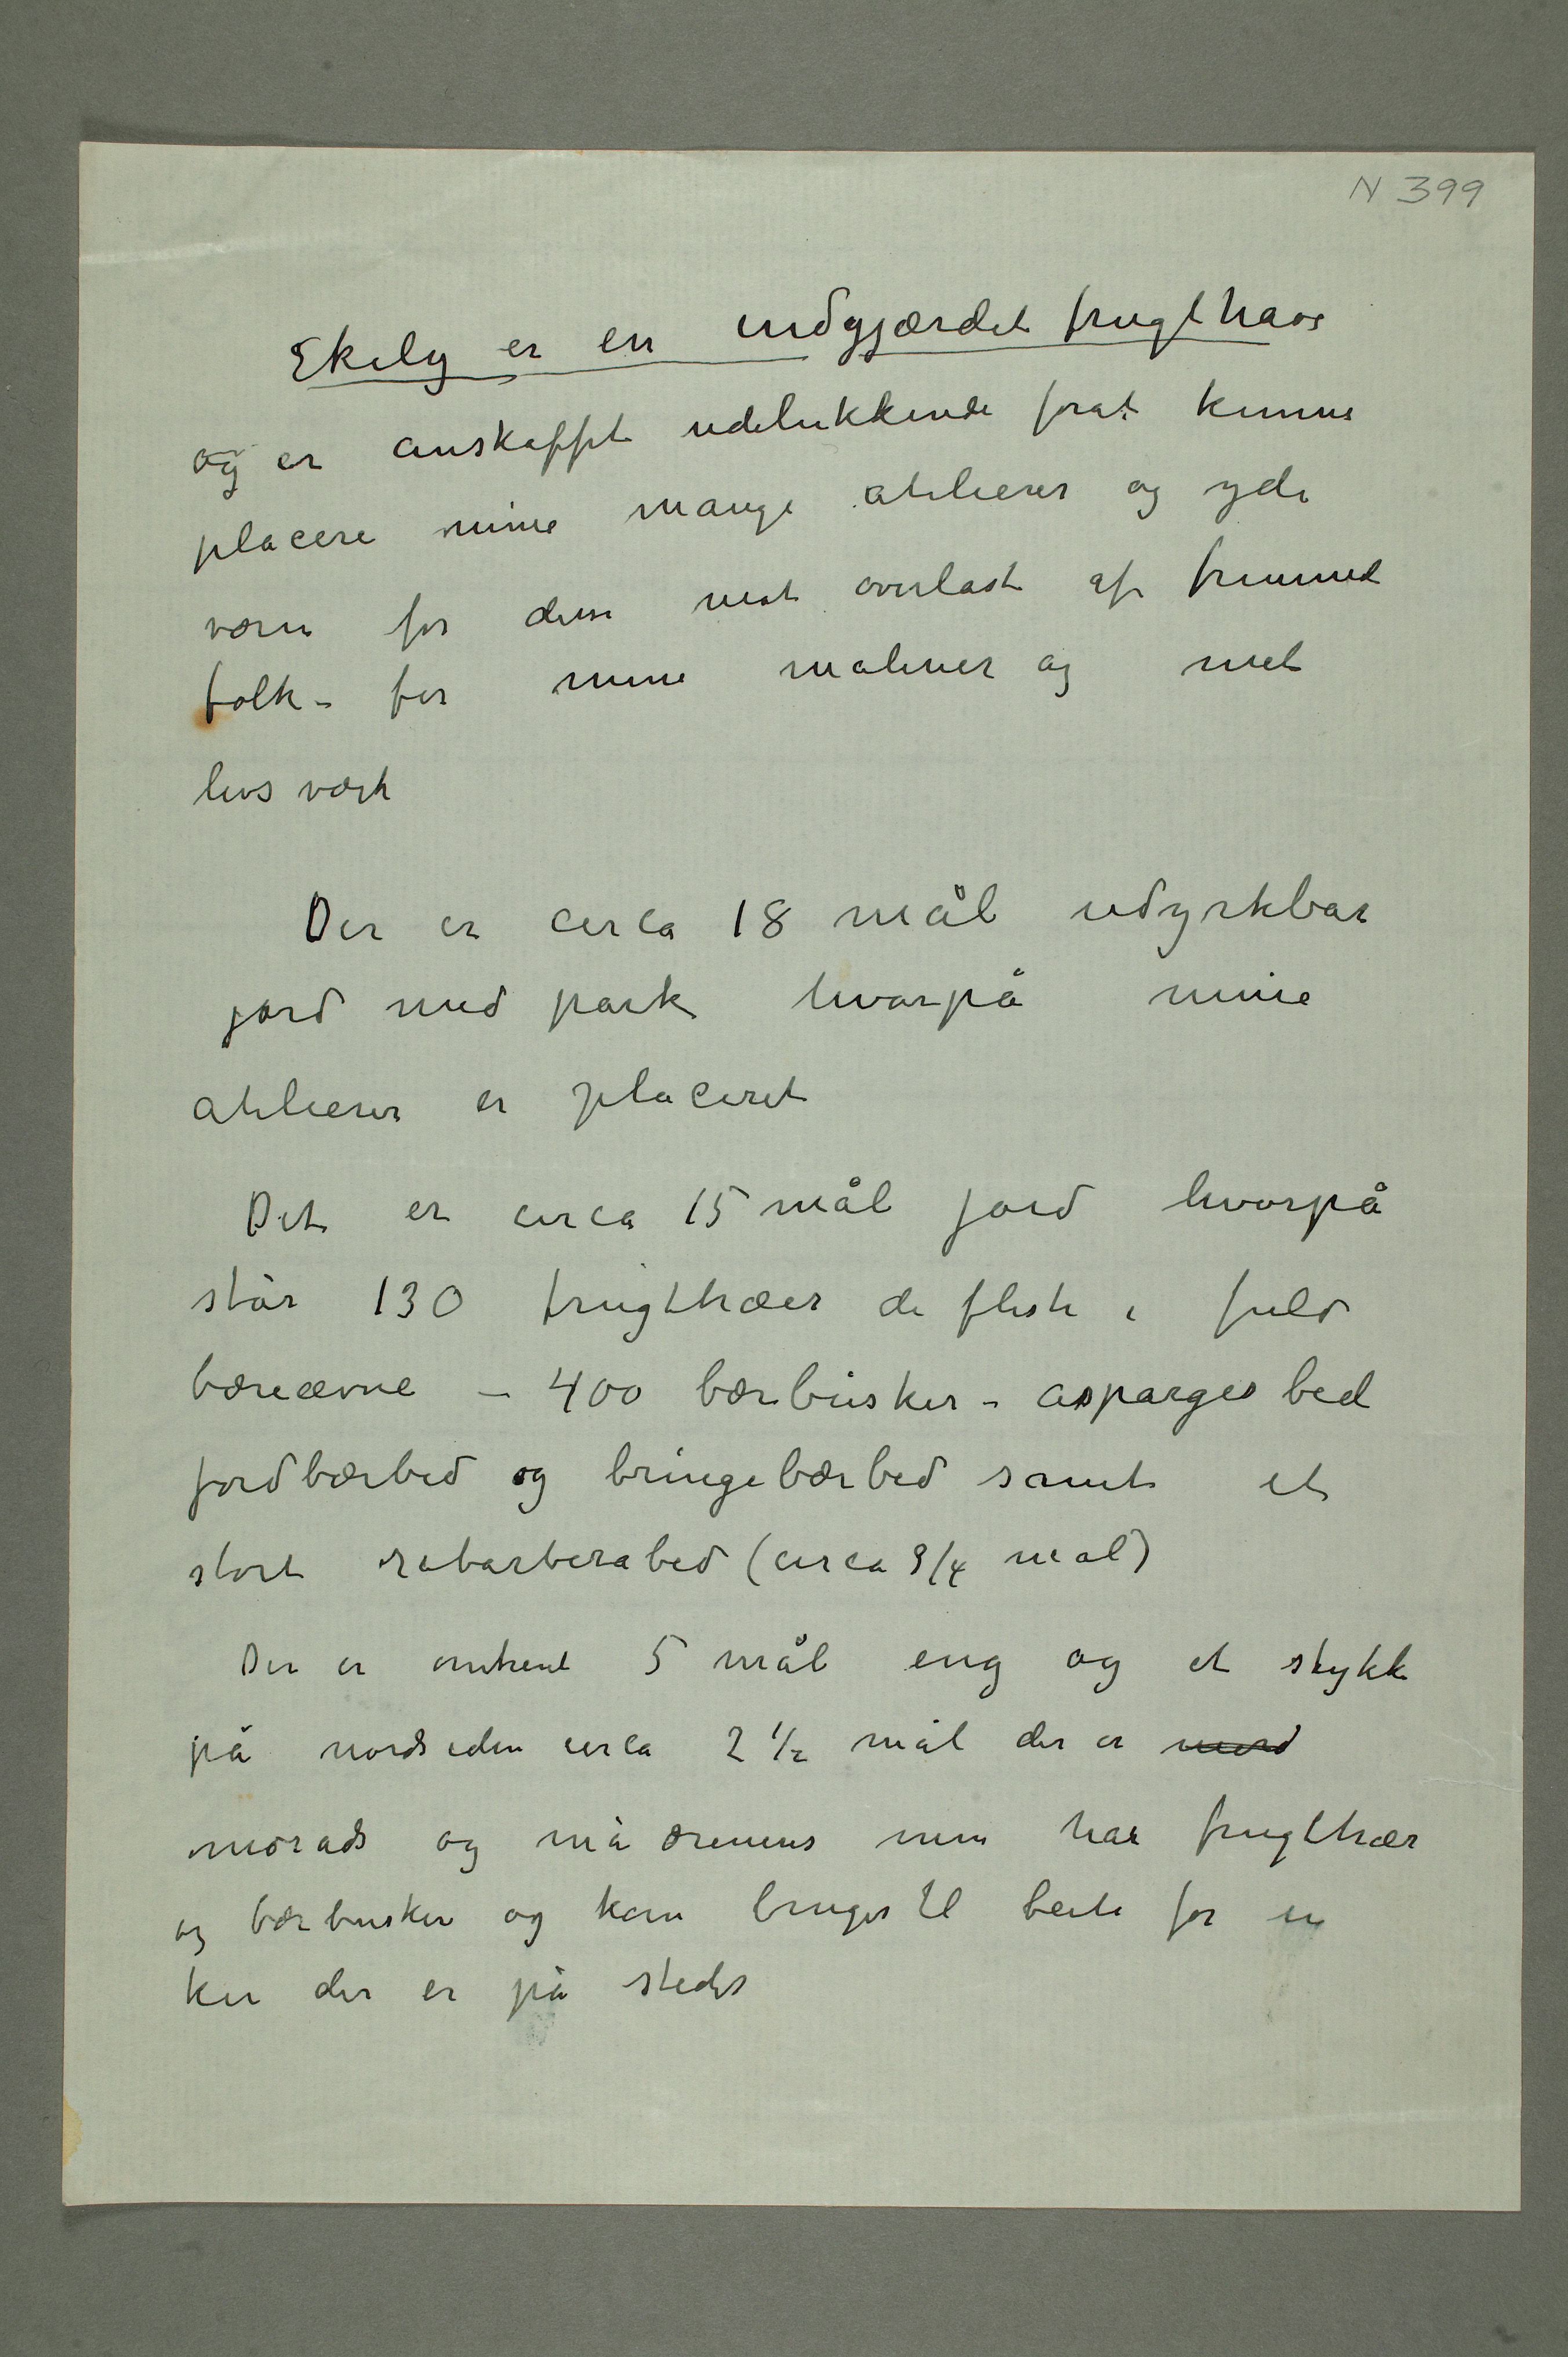 N 399
Ekely er en indgjærdet frugthave
og er anskaffet udelukkende forat kunne
placere mine mange atelierer og yde
værn for disse mot overlast af fremmed
folk – for mine malerier og mit
livsværk
Der er circa 18 mål udyrkbar
jord med park hvorpå mine
atelierer er placeret
Det er circa 15 mål jord hvorpå
står 130 frugttræer de fleste i fuld
bæreævne – 400 bærbusker – asparges bed
jordbærbed og bringebærbed samt et
stort rabarberabed (circa 3/4 mål)
Der er omtrent 5 mål eng og et stykke
på nordsiden circa 2 1/2 mål der er
morads og må drenes men har frugttrær
og bærbusker og kan bruges til beite for en
ku der er på stedet